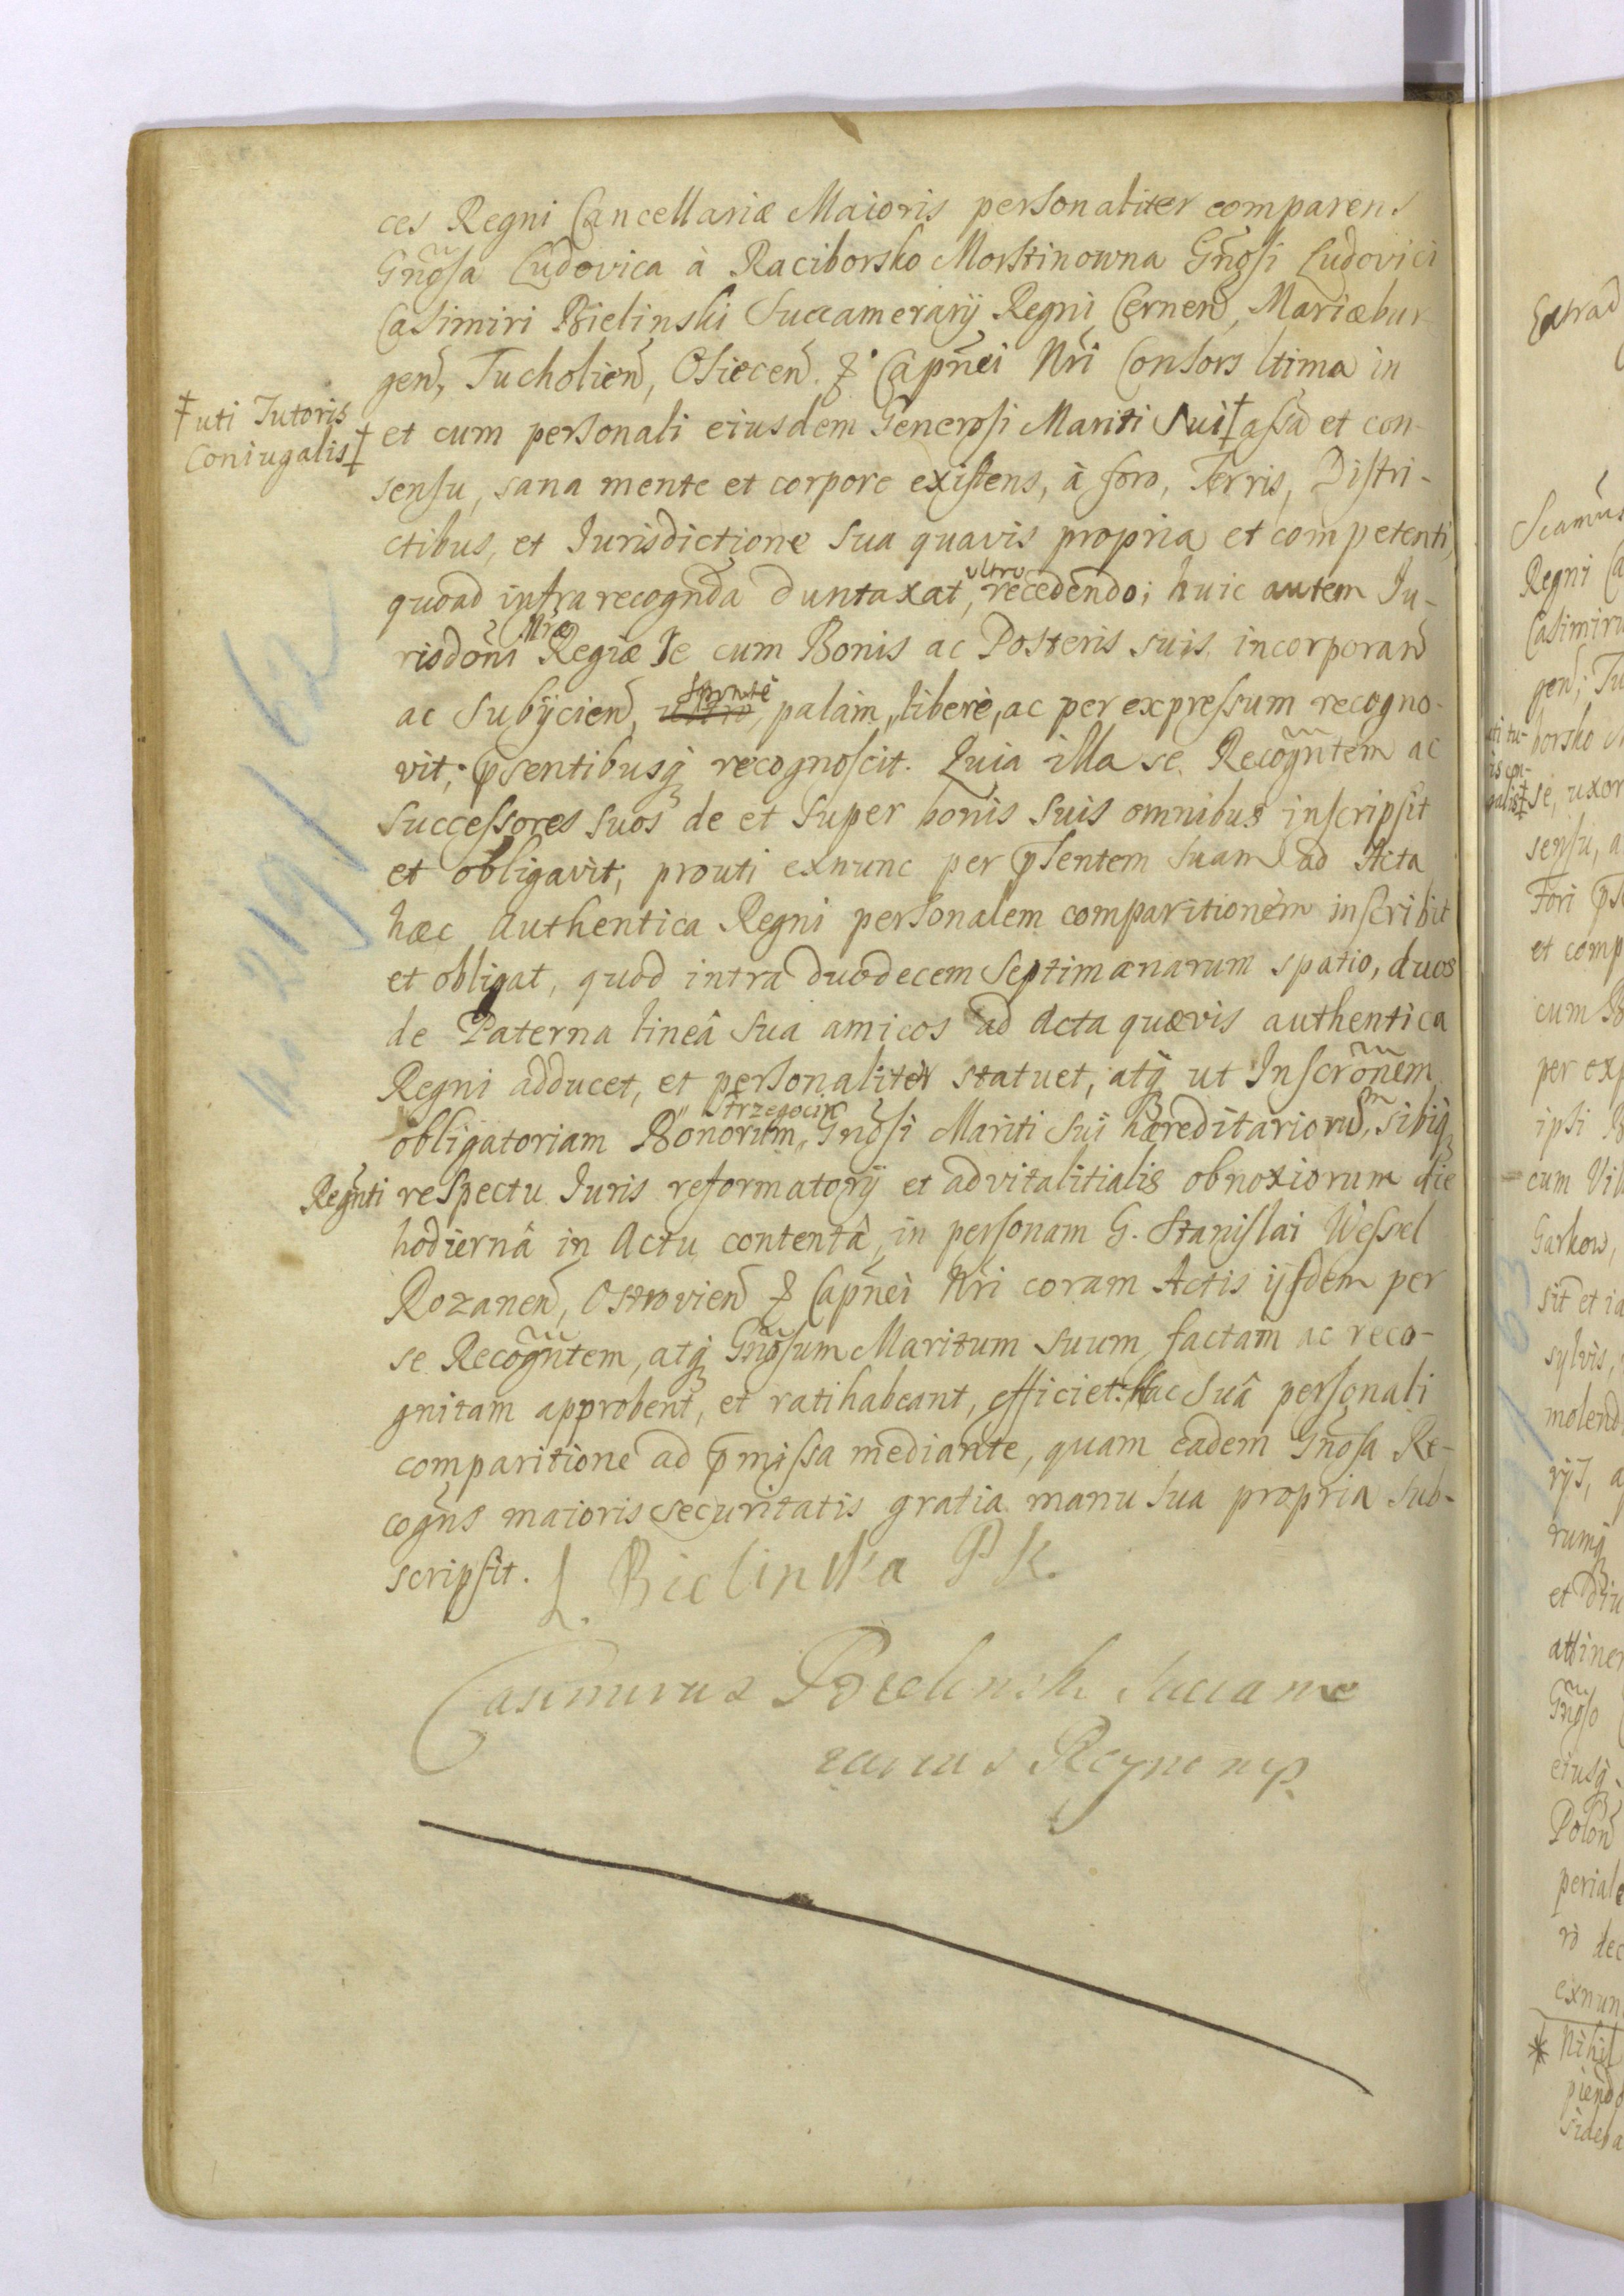 ces Regni Cancellariæ Maioris personaliter comparens
Gñosa Ludovica à Raciborsko Morstinowna Gñosi Ludovici
Casimiri Bielinski Succamerarij Regni Cernen̄, Mariæbur
gen̄, Tucholien̄, Osiecen̄. & Capñei Nr̃i Consors ltima in
‡uti Tutoris
Coniugalis‡
et cum personali eiusdem Generosi Mariti sui‡ assã et con-
sensu, sana mente et corpore existens, à foro, Terris, Distri-
ctibus, et Iurisdictione sua quavis propria et competenti,
quoad infra recognđa duntaxat, ultro recedendo; huic autem Ju-
risdõni Nr̃æ Regiæ se cum Bonis ac Posteris suis incorporan̄
ac subÿcien̄, ultro sponte, palàm, liberè, ac per expressum recogno-
vit, p̄sentibusq̃ recognoscit. Quia illa se Recogñtem ac
successores suos de et super bonis suis omnibus inscripsit
et obligavit; prouti exnunc per p̄sentem suam ad Acta
hæc Authentica Regni personalem comparitionem inscribit
et obligat, quod intra duodecem septimanarum spatio, duos
de Paterna lineâ sua amicos ad Acta quævis authentica
Regni adducet, et personaliter statuet, atq̃ ut Inscrõnem
obligatoriam Bonorum Strzegocin Gñosi Mariti sui hæreditariorum, sibiq̃
Regñti respectu Iuris reformatorÿ et advitalitialis obnoxiorum die
hodiernâ in Actu contentâ, in personam G. Stanislai Wessel
Rozanen̄, Ostrovien̄ & Capñei Nr̃i coram Actis ijsdem per
se Recogñtem, atq̃ Gñosum Maritum suum factam ac reco-
gnitam approbent, et ratihabeant, efficiet. Hac suâ personali
comparitione ad p̄missa mediante, quam eadem Gñosa Re-
cogñs maioris securitatis gratia manu sua propria sub-
scripsit.
L. Bielinska P K.
Casimirus Bielinski Succame
rarius Regni mp.